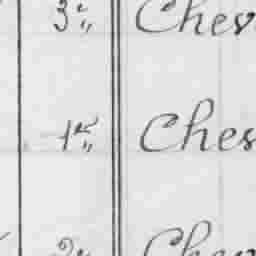 3e " Chev
1er " Ches
2e " Chev